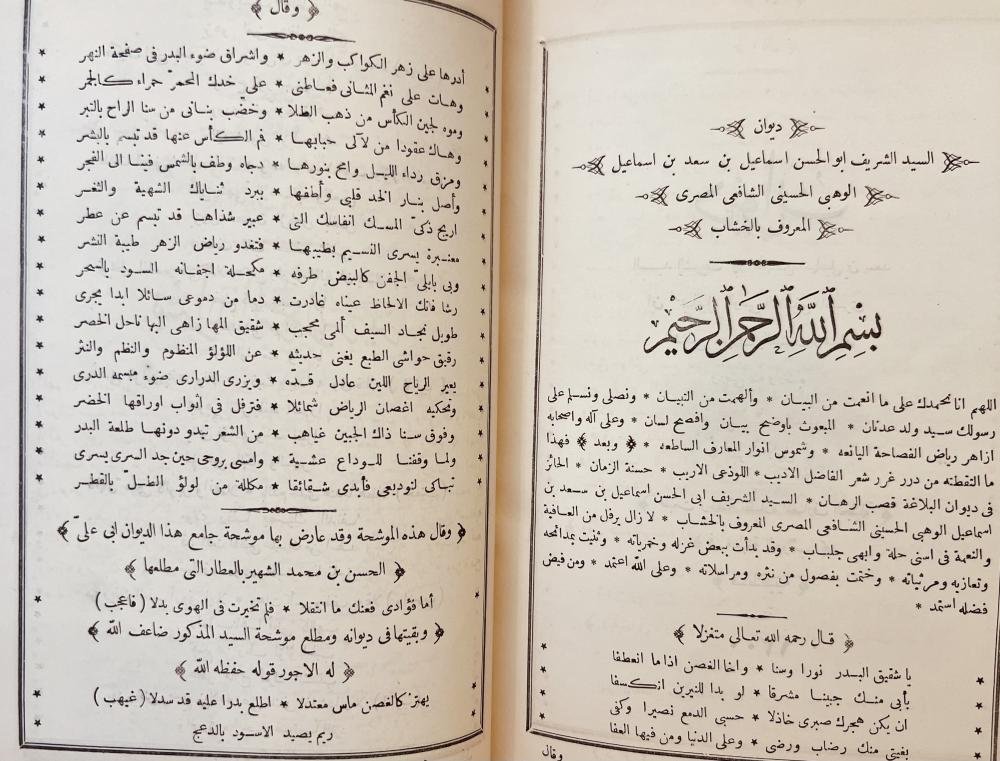 ديوان
السيد الشريف ابو الحسن اسماعيل بن سعد بن اسماعيل
الوهبى الحسينى الشافعى المصرى
المعروف بالخشاب
بسم الله الرحمن الرحيم
اللهم انا نحمدك على ما انعمت من البيان * وألهمت من التبيان * ونصلى ونسلم على
رسولك سيد ولد عدنان * المبعوث باوضح بيان وافصح لسان * وعلى آله واصحابه
ازاهر رياض الفصاحة اليانعه * وشموس انوار المعارف الساطعه * ﴿ وبعد ﴾ فهذا
ما التقطته من درر غرر شعر الفاضل الاديب * اللوذعى الاريب * حسنة الزمان * الحائز
فى ديوان البلاغة قصب الرهان * السيد الشريف ابى الحسن اسماعيل بن سعد بن
اسماعيل الوهبى الحسينى الشافعى المصرى المعروف بالخشاب * لا زال يرفل من العافية
والنعمة فى اسنى حلة وابهى جلباب * وقد بدأت ببعض غزله وخمرياته * وثنيت بمدائحه
وتعازيه ومرثياته * وختمت بفصول من نثره ومراسلاته * وعلى الله اعتمد * ومن فيض
فضله استمد *
﴿ قال رحمه الله تعالى متغزلا ﴾
يا شقيق البدر نورا وسنا * واخا الغصن اذا ما انعطفا
بأبى منك جبينا مشرقا * لو بدا للنيرين انكسفا
ان يكن هجرك صبرى خاذلا * حسبى الدمع نصيرا وكفى
بغيتى منك رضاب ورضى * وعلى الدنيا ومن فيها العفا
وقال
﴿ وقال ﴾
أدرها على زهر الكواكب والزهر * واشراق ضوء البدر فى صفحة النهر
وهات على نغم المثانى فعاطنى * على خدك المحمر حمراء كالجمر
وموه لجين الكأس من ذهب الطلا * وخضب بنانى من سنا الراح بالتبر
وهاك عقودا من لآلى حبابها * فم الكأس عنها قد تبسم بالبشر
ومزق رداء الليل وامح بنورها * دجاه وطف بالشمس فينا الى الفجر
وأصل بنار الخد قلبى وأطفها * ببرد ثناياك الشهية والثغر
اريج ذكى المسك انفاسك التى * عبير شذاها قد تبسم عن عطر
معنبرة يسرى النسيم بطيبها * فتغدو رياض الزهر طيبة النشر
وبى بابلى الجفن كالبيض طرفه * مكحلة اجفانه السود بالسحر
رشا فاتك الالحاظ عيناه غادرت * دما من دموعى سائلا ابدا يجرى
طويل نجاد السيف ألمى محجب * شقيق المها زاهى البها ناحل الخصر
رقيق حواشى الطبع يغنى حديثه * عن اللؤلؤ المنظوم والنظم والنثر
يعير الرياح اللين عادل قده * ويزرى الدرارى ضوء مبسمه الدرى
وتحكيه اغصان الرياض شمائلا * فترفل فى اثواب اوراقها الخضر
وفوق سنا ذاك الجبين غياهب * من الشعر تبدو دونها طلعة البدر
ولما وقفنا للوداع عشية * وامسى بروحى حين جد السرى يسرى
تباكى لتوديعى فأبدى شقائقا * مكللة من لؤلؤ الطل بالقطر
﴿ وقال هذه الموشحة وقد عارض بها موشحة جامع هذا الديوان ابى على ﴾
﴿ الحسن بن محمد الشهير بالعطار التى مطلعها ﴾
أما فؤادى فعنك ما انتقلا * فلم تخيرت فى الهوى بدلا (فاعجب)
﴿ وبقيتها فى ديوانه ومطلع موشحة السيد المذكور ضاعف الله ﴾
﴿ له الاجور قوله حفظه الله ﴾
يهتز كالغصن ماس معتدلا * اطلع بدرا عليه قد سدلا (غيهب)
ريم يصيد الاسود بالدعج